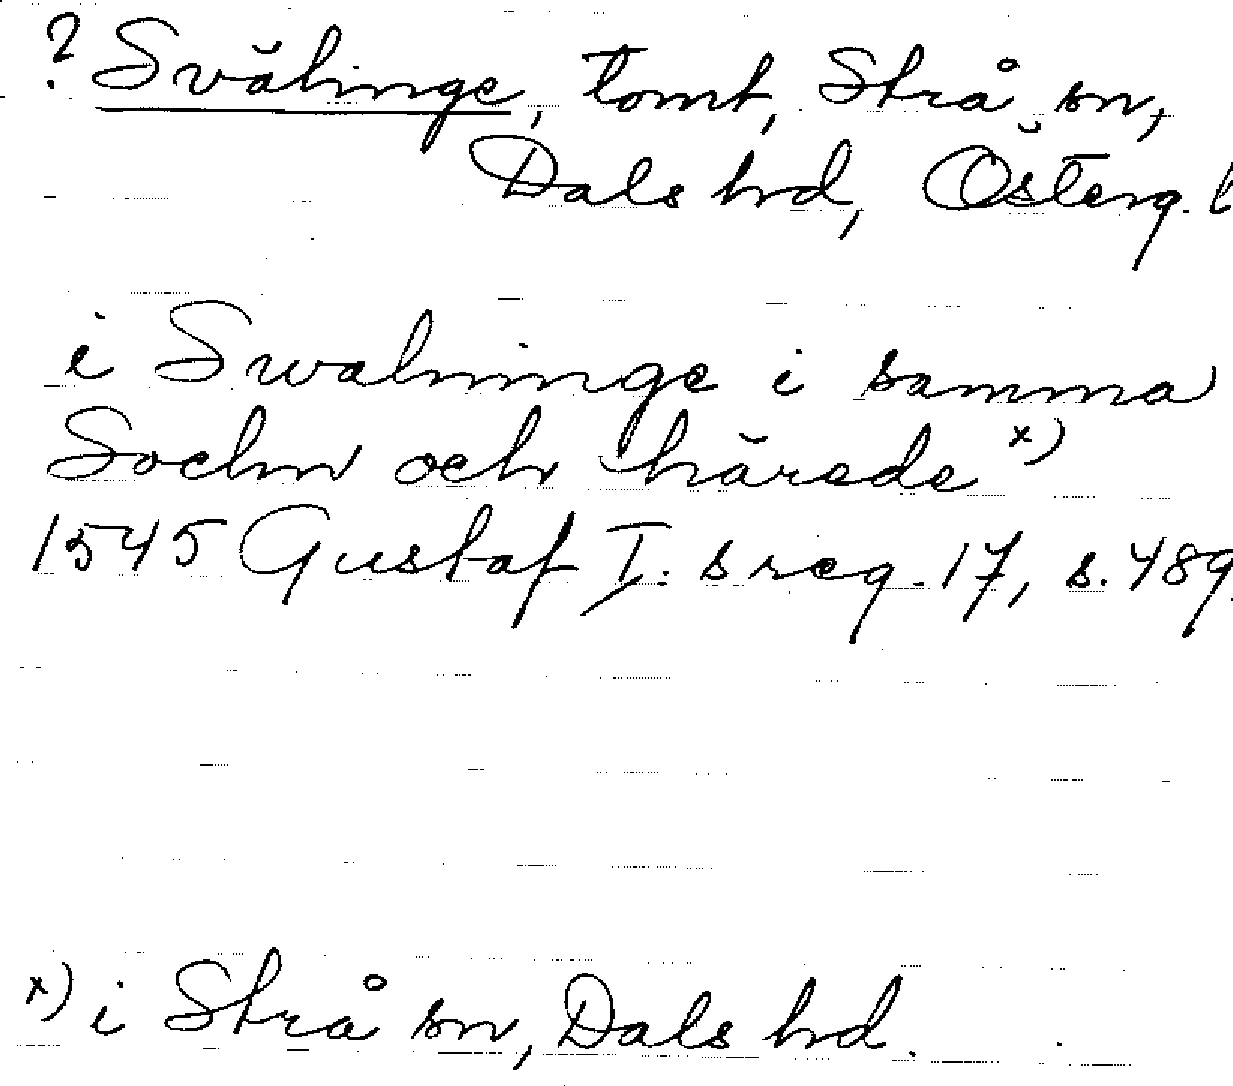 ? Svälinge, tomt, Strå sn,
Dals hd, Österg. l
i Swalninge i samma
Sochn och härede x)
1545 Gustaf I:s reg. 17, s. 489.
x) i Strå sn, Dals hd.